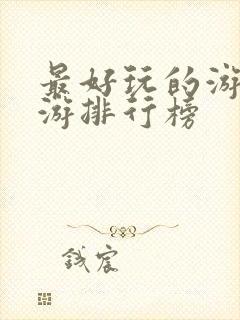 最好玩的游
游排行榜
钱宸